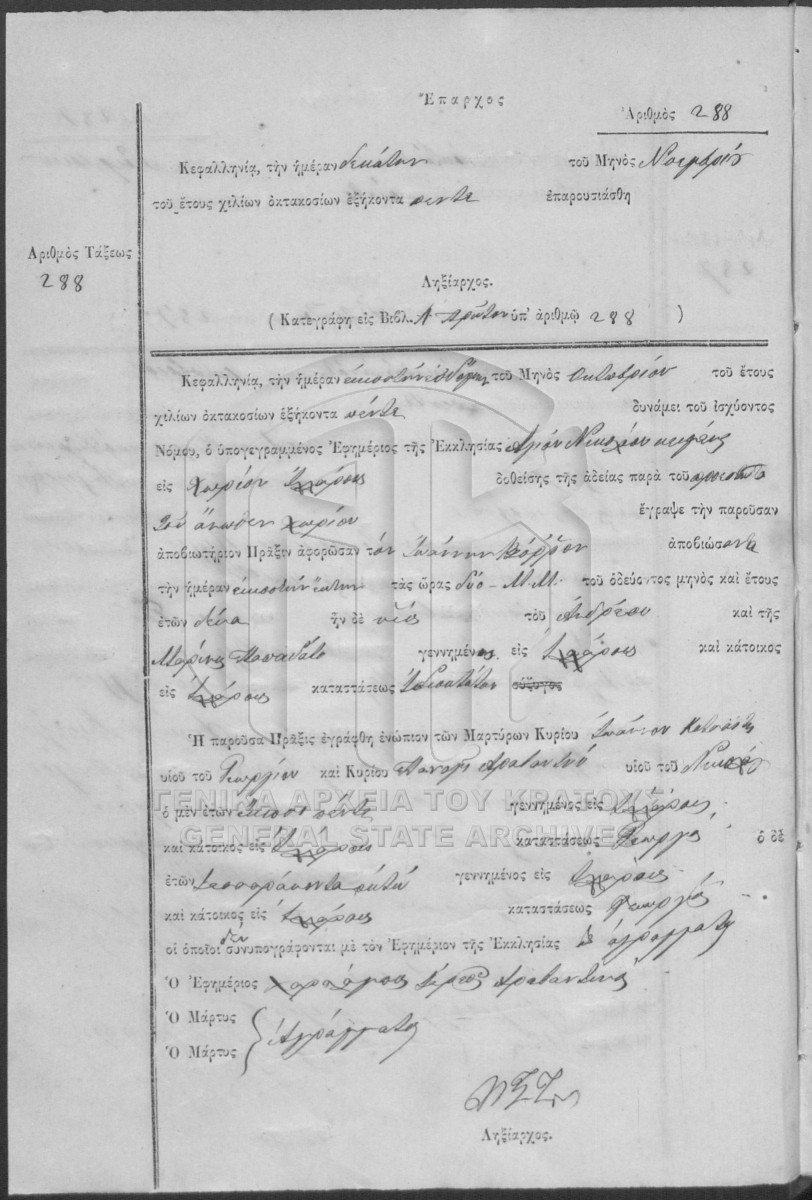 Ἔπαρχος
Ἀριθμὸς 288
Κεφαλληνίᾳ, τὴν ἡμέραν δεκάτην τοῦ Μηνὸς Νοεμβρίου
τοῦ ἔτους χιλίων ὀκτακοσίων ἑξήκοντα πέντε ἐπαρουσιάσθη
Ἀριθμὸς Τάξεως
288
Ληξίαρχος.
(Κατεγράφη εἰς Βιβλ. Α πρῶτον ὑπ' ἀριθμῷ 288)
Κεφαλληνίᾳ, τὴν ἡμέραν εἰκοστὴν ἑβδόμην τοῦ Μηνὸς Οκτωβρίου τοῦ ἔτους
χιλίων ὀκτακοσίων ἑξήκοντα πέντε δυνάμει τοῦ ἰσχύοντος
Νόμου, ὁ ὑπογεγραμμένος Ἐφημέριος τῆς Ἐκκλησίας Αγίου Νικολάου
εἰς Χωρίον δοθείσης τῆς ἀδείας παρὰ τοῦ
τοῦ ἄνωθεν χωρίου ἔγραψε τὴν παροῦσαν
ἀποβιωτήριον Πρᾶξιν ἀφορῶσαν τὸν Ἰωάννην ἀποβιώσαντα
τὴν ἡμέραν εἰκοστὴν ἕκτην τὰς ὥρας δύο Μ.Μ. τοῦ ὁδεύοντος μηνὸς καὶ ἔτους
ἐτῶν δέκα ἦν δὲ υἱὸς τοῦ Ανδρέου καὶ τῆς
Μαρίνας γεννημένος εἰς καὶ κάτοικος
εἰς καταστάσεως σύζυγος
Ἡ παροῦσα Πρᾶξις ἐγράφθη ἐνώπιον τῶν Μαρτύρων Κυρίου Ἰωάννου
υἱοῦ τοῦ Γεωργίου καὶ Κυρίου Παναγῆ Αραβαντινὸ υἱοῦ τοῦ Νικολάου
ὁ μὲν ἐτῶν εἴκοσι πέντε γεννημένος εἰς
καὶ κάτοικος εἰς καταστάσεως Γεωργὸς ὁ δὲ
ἐτῶν τεσσαράκοντα ὀκτὼ γεννημένος εἰς
καὶ κάτοικος εἰς καταστάσεως Γεωργὸς
οἱ ὁποῖοι δὲν συνυπογράφονται μὲ τὸν Ἐφημέριον τῆς Ἐκκλησίας ὡς ἀγράμματοι
Ὁ Ἐφημέριος Χαράλαμπος Ἱερεὺς Αραβαντινὸς
Ὁ Μάρτυς
Ὁ Μάρτυς
Ἀγράμματοι
Ληξίαρχος.
ΓΕΝΙΚΑ ΑΡΧΕΙΑ ΤΟΥ ΚΡΑΤΟΥΣ
GENERAL STATE ARCHIVES